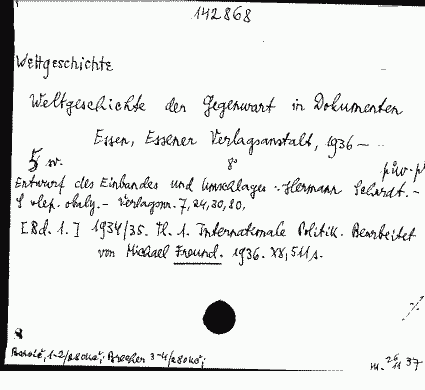 142868
Weltgeschichte
Weltgeschichte der Gegenwart in Dokumenten
Essen, Essener Verlagsanstalt, 1936 –
5 sv. 8° pův. pl
Entwurf des Einbandes und Umschlages: Hermann Schardt. –
S vlep. obály. – Verlagsnr. 7, 24, 30, 20.
[Bd. 1.] 1934/35. Tl. 1. Internationale Politik. Bearbeitet
von Michael Freund. 1936. XX, 511 s.
m. 26 11 37